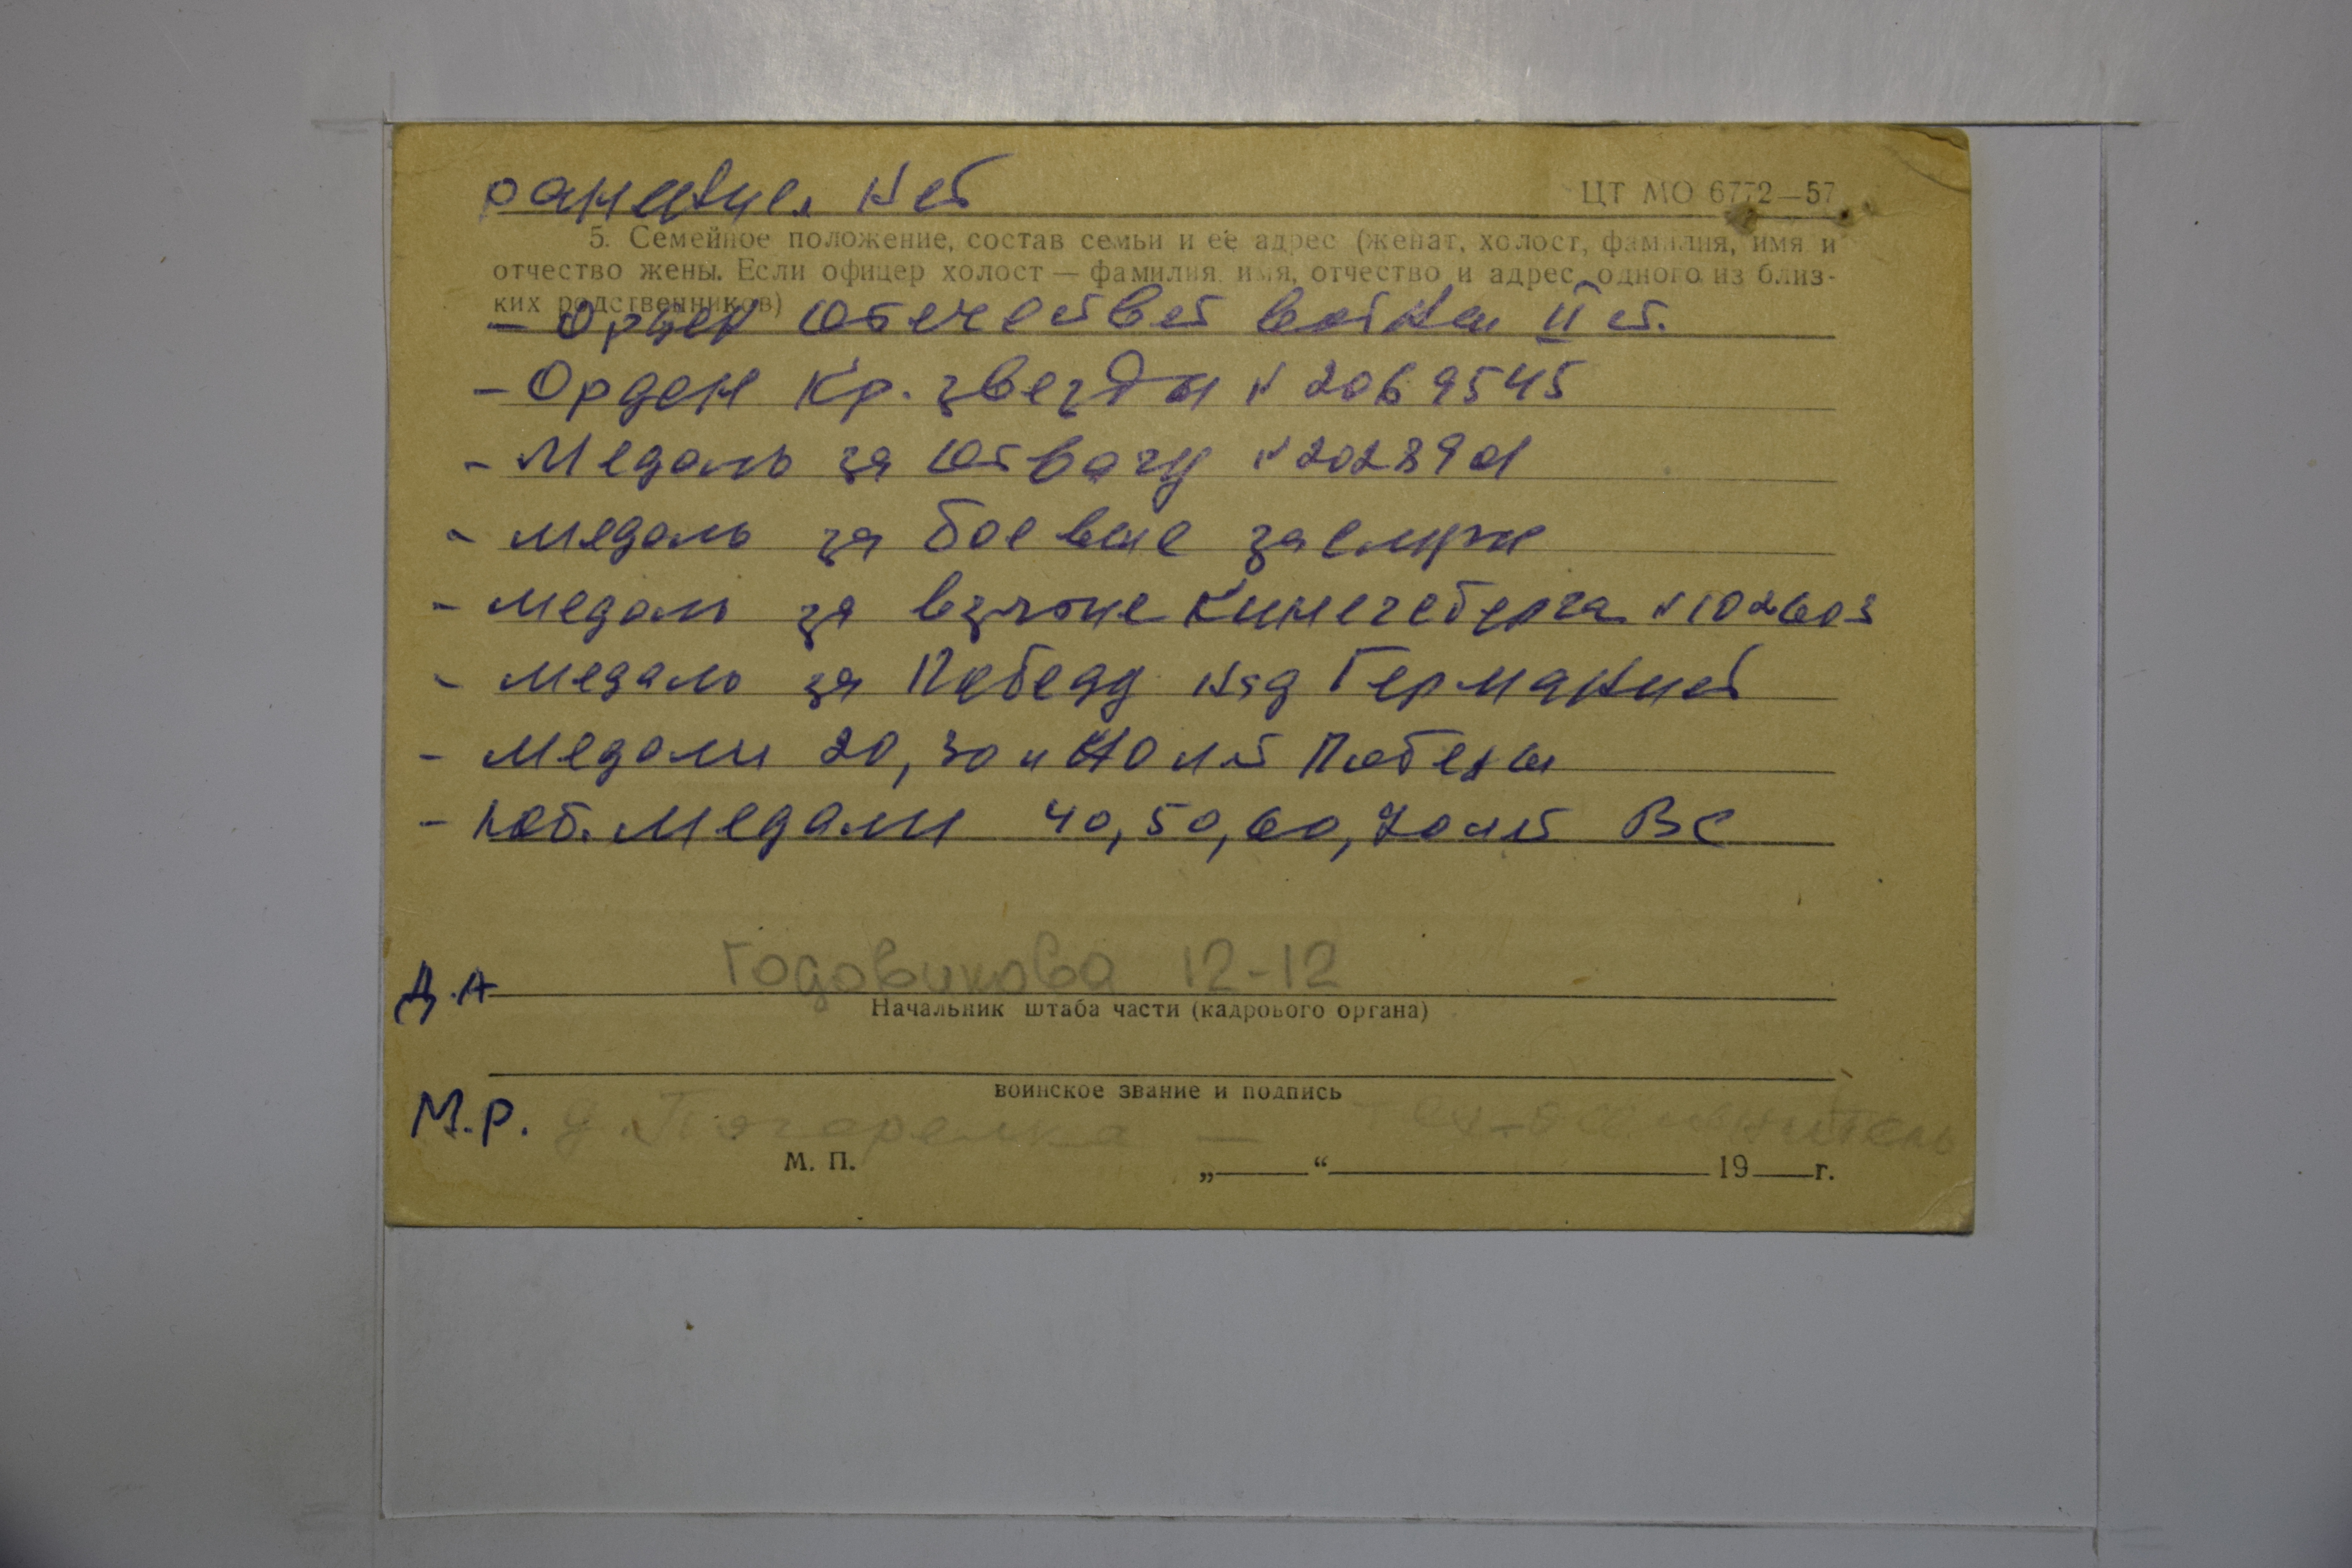 ранения нет
ЦТ МО 6772—57
5. Семейное положение, состав семьи и ее адрес (женат, холост, фамилия, имя и
отчество жены. Если офицер холост — фамилия, имя, отчество и адрес одного из близ-
ких родственников)
- Орден Отечествен войны II ст.
- Орден Кр. звезды № 2069545
- Медаль за Отвагу №
- медаль за боевые заслуги
- медаль за взятие Кинегсберга № 102603
- медаль за Победу над Германией
- медали 20, 30 и 40 лет Победы
- юб. медали 40, 50, 60, 70 лет ВС
Годовикова 12-12
Д.А
Начальник штаба части (кадрового органа)
воинское звание и подпись
М.Р. д. Погорелка —
М. П. „ “ 19 г.